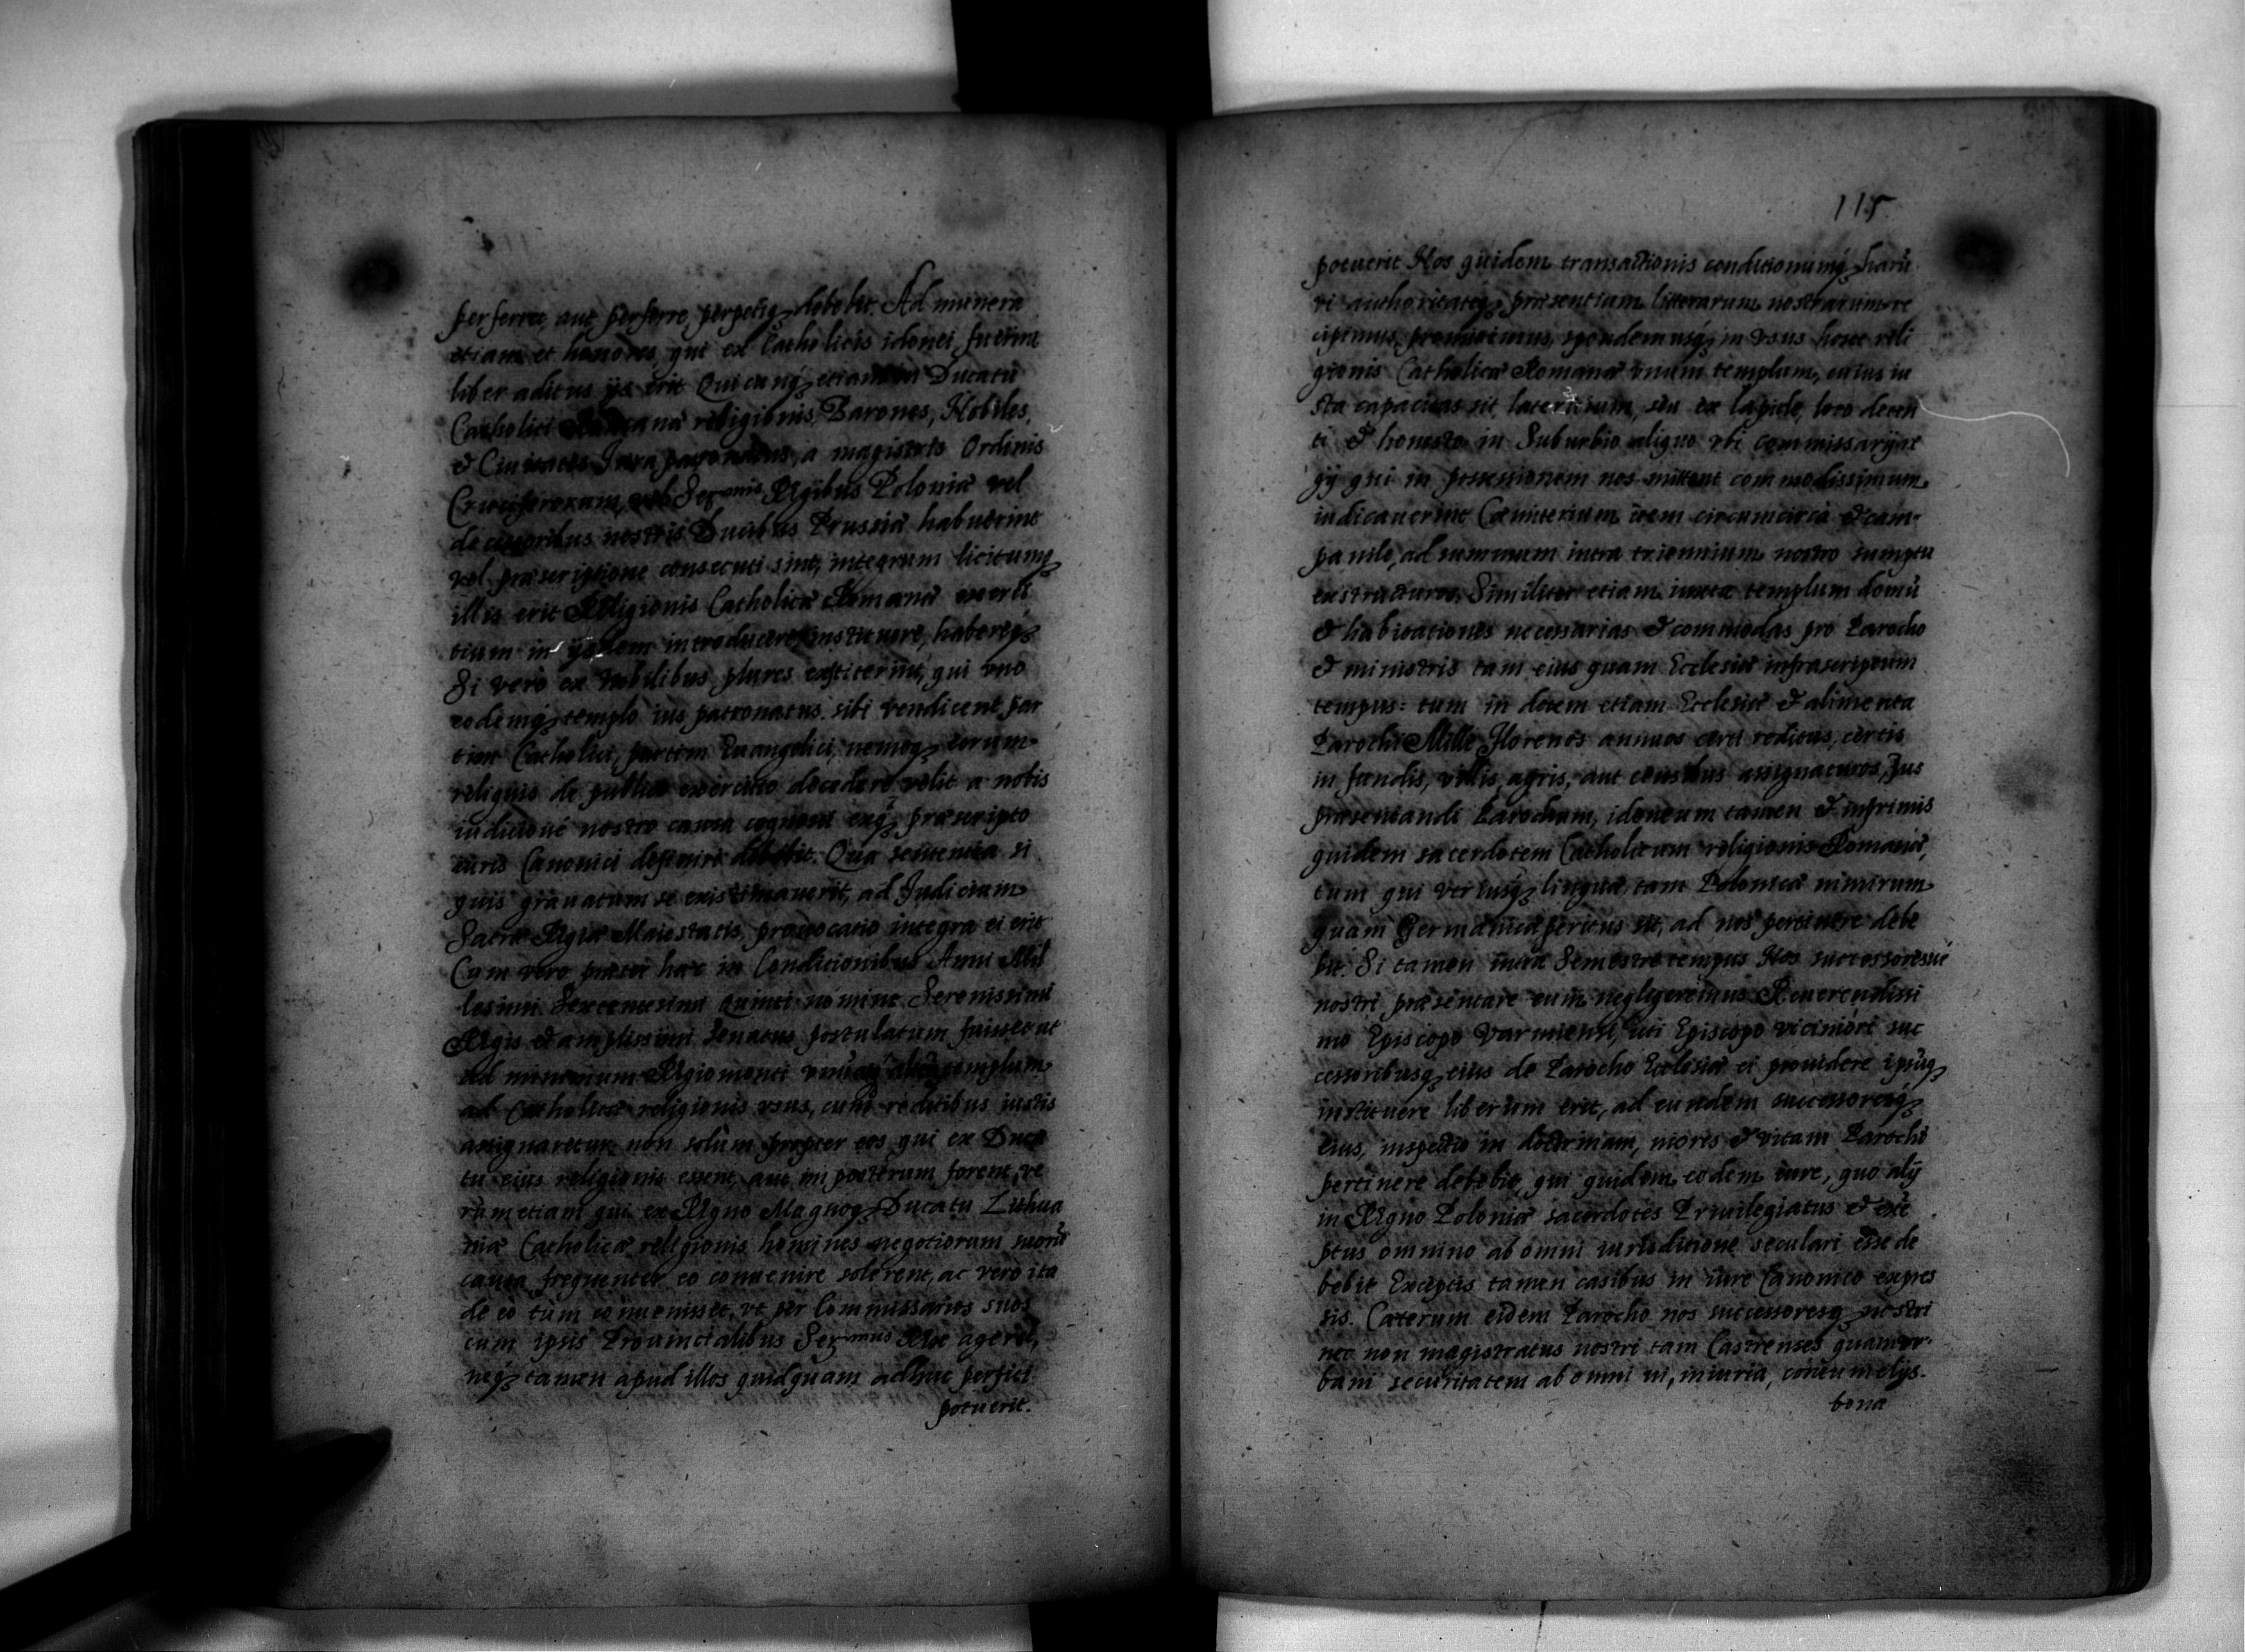 perferre aut perferre perpetiq; debebit. Ad munera
etiam et honores, qui ex Catholicis idonei fuerint
liber aditus ijs erit Quicunq; etiam in Ducatu
Catholici Romanæ religionis Barones, Nobiles,
& Ciuitates Iura patronatus, a magistris Ordinis
Cruciferorum, vel Ser.mis Regibus Poloniæ vel
decessoribus nostris Ducibus Prussiæ habuerint
vel præscriptione consecuti sint, integrum licitumq;
illis erit Religionis Catholicæ Romanæ exerci
tium in ijsdem introducere, instituere, habereq;
Si vero ex Nobilibus plures extiterint, qui vno
eodemq; templo ius patronatus sibi vendicent par
tim Catholici, partim Euangelici, nemoq; eorum
reliquis de publico exercitio decedere velit a nobis
iudicioue nostro causa cognosci exq; præscripto
iuris Canonici definiri debebit. Qua sententia si
quis grauatum se existimauerit, ad Iudicium
Sacræ Regiæ Maiestatis prouocatio integra ei erit
Cum vero præter hæc in Conditionibus Anni Mil
lesimi Sexcentesimi quinti nomine Serenissimi
Regis & amplissimi Senatus postulatum fuisset ut
ad minimum Regiomonti templum
ad Catholicæ religionis vsus, cum reditibus iustis
assignaretur non solum propter eos qui ex Duca
tu eius religionis essent aut in posterum forent, ve
rum etiam qui ex Regno Magnoq; Ducatu Lithua
niæ Catholicæ religionis homines negotiorum suorũ
causa frequenter eo conuenire solerent, ac vero ita
de eo tum conuenisset, vt per Commissarios suos
cum ipsis Prouincialibus Ser.mus Rex ageret,
neq; tamen apud illos quidquam adhuc perfici
potuerit.
115
potuerit Nos quidem transactionis conditionumq; harũ
vi authoritateq; præsentium litterarum nostrarum re
cipimus, promittimus, spondemusq; in vsus hosce reli
gionis Catholicæ Romanæ vnum templum, cuius iu
sta capacitas sit lateritium, seu ex lapide, loco decen
ti & honesto in Suburbio aliquo vbi Commissarij re
gij qui in possessionem nos mittent commodissimum
iudicauerint Cæmiterium item circumcirca & cam-
panile, ad summum intra triennium nostro sumptu
exstructuros, Similiter etiam iuxta templum domũ
& habitationes necessarias & commodas pro Parocho
& ministris tam eius quam Ecclesiæ infrascriptum
tempus: tum in dotem etiam Ecclesiæ & alimenta
Parochi Mille Florenos annuos certi reditus, certis
in fundis, villis, agris, aut censibus assignaturos, Ius
præsentandi Parochum, idoneum tamen & inprimis
quidem sacerdotem Catholicum religionis Romanæ,
tum qui vtriusq; linguæ tam Polonicæ nimirum
quam Germanicæ peritus sit, ad nos pertinere debe
bit. Si tamen intra Semestre tempus Nos successoresue
nostri præsentare eum negligeremus Reuerendissi
mo Episcopo Varmiensi, uti Episcopo viciniori suc
cessoribusq; eius de Parocho Ecclesiæ ei prouidere ipsũq;
instituere liberum erit, ad eundem successoresq;
eius, inspectio in doctrinam, mores & vitam Parochi
pertinere debebit, qui quidem eodem iure, quo alij
in Regno Poloniæ sacerdotes Priuilegiatus & exẽ
ptus omnino ab omni iurisdictione seculari esse de
bebit Exceptis tamen casibus in iure Canonico expres
sis. Cæterum eidem Parocho nos successoresq; nostri
nec non magistratus nostri tam Castrenses quam vr-
bani securitatem ab omni vi, iniuria, contumelijs.
bona